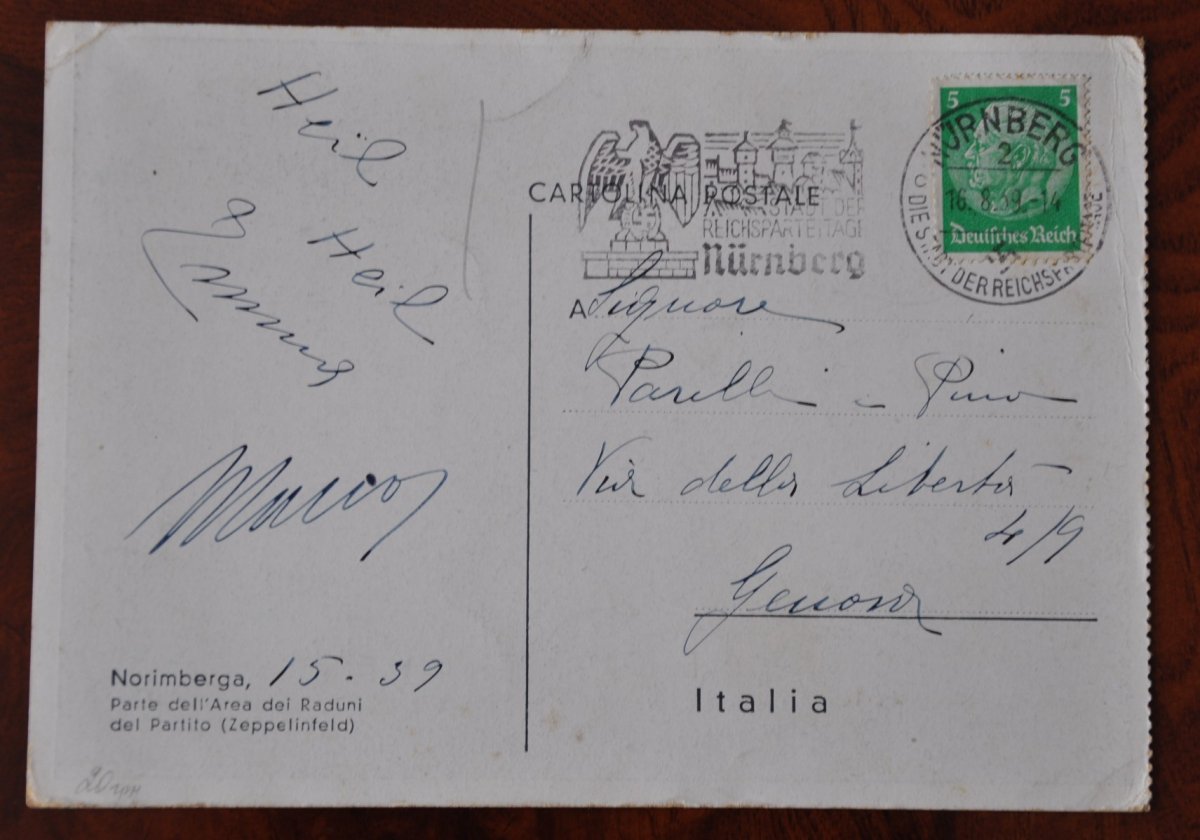 Heil
Heil
CARTOLINA POSTALE
STADT DER
REICHSPARTEITAGE
Nürnberg
5 5
Deutsches Reich
NÜRNBERG
2
16.8.39.-14
DIE STADT DER REICHSPARTEITAGE
A Signore
Parelli Pino
Via della Libertà
4/9
Genova
Italia
Marco
Norimberga, 15 - 39
Parte dell'Area dei Raduni
del Partito (Zeppelinfeld)